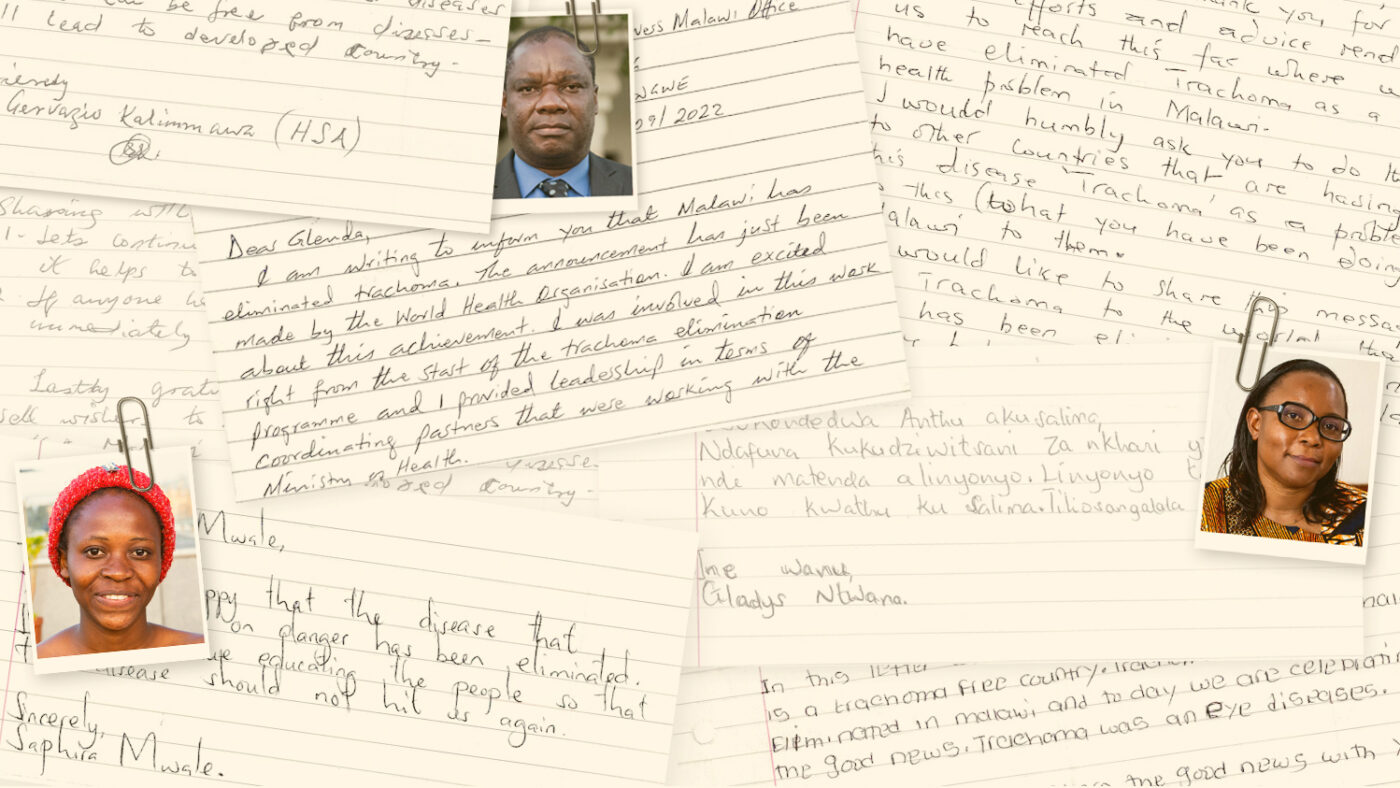 can be free from diseases
ll lead to developed country.
Gervazio Kalimmawa (HSA)
ness Malawi Office
NGWE
09/2022
Dear Glenda,
I am writing to inform you that Malawi has
eliminated trachoma. The announcement has just been
made by the World Health Organisation. I am excited
about this achievement. I was involved in this work
right from the start of the trachoma elimination
programme and I provided leadership in terms of
coordinating partners that were working with the
Ministry of Health.
ank you for
efforts and advice rend
us to reach this far where w
have eliminated Trachoma as a
health problem in Malawi.
I would humbly ask you to do th
to other countries that are having
this disease Trachoma as a proble
this (what you have been doing
Malawi to them.
would like to share this messa
Trachoma to the world
has been eli
Sharing with
1. Lets continu
it helps to
If anyone ha
immediately
Lastly grat
well wishers to
oped country.
Anthu akusalima,
Ndafuna kukudziwitsani za nkhani y
ndi matenda alinyonyo. Linyonyo t
Kuno kwathu ku Salima. Tikosangalala
Ine wanu,
Gladys Ntwana.
Mwale,
ppy that the disease that
on danger has been eliminated.
ue educating the people so that
disease should not hit us again.
Sncerely,
Saphira Mwale.
In this letter
is a trachoma free country. Trach
eliminated in malawi and today we are celebratin
the good news. Trachoma was an eye diseases.
the good news with